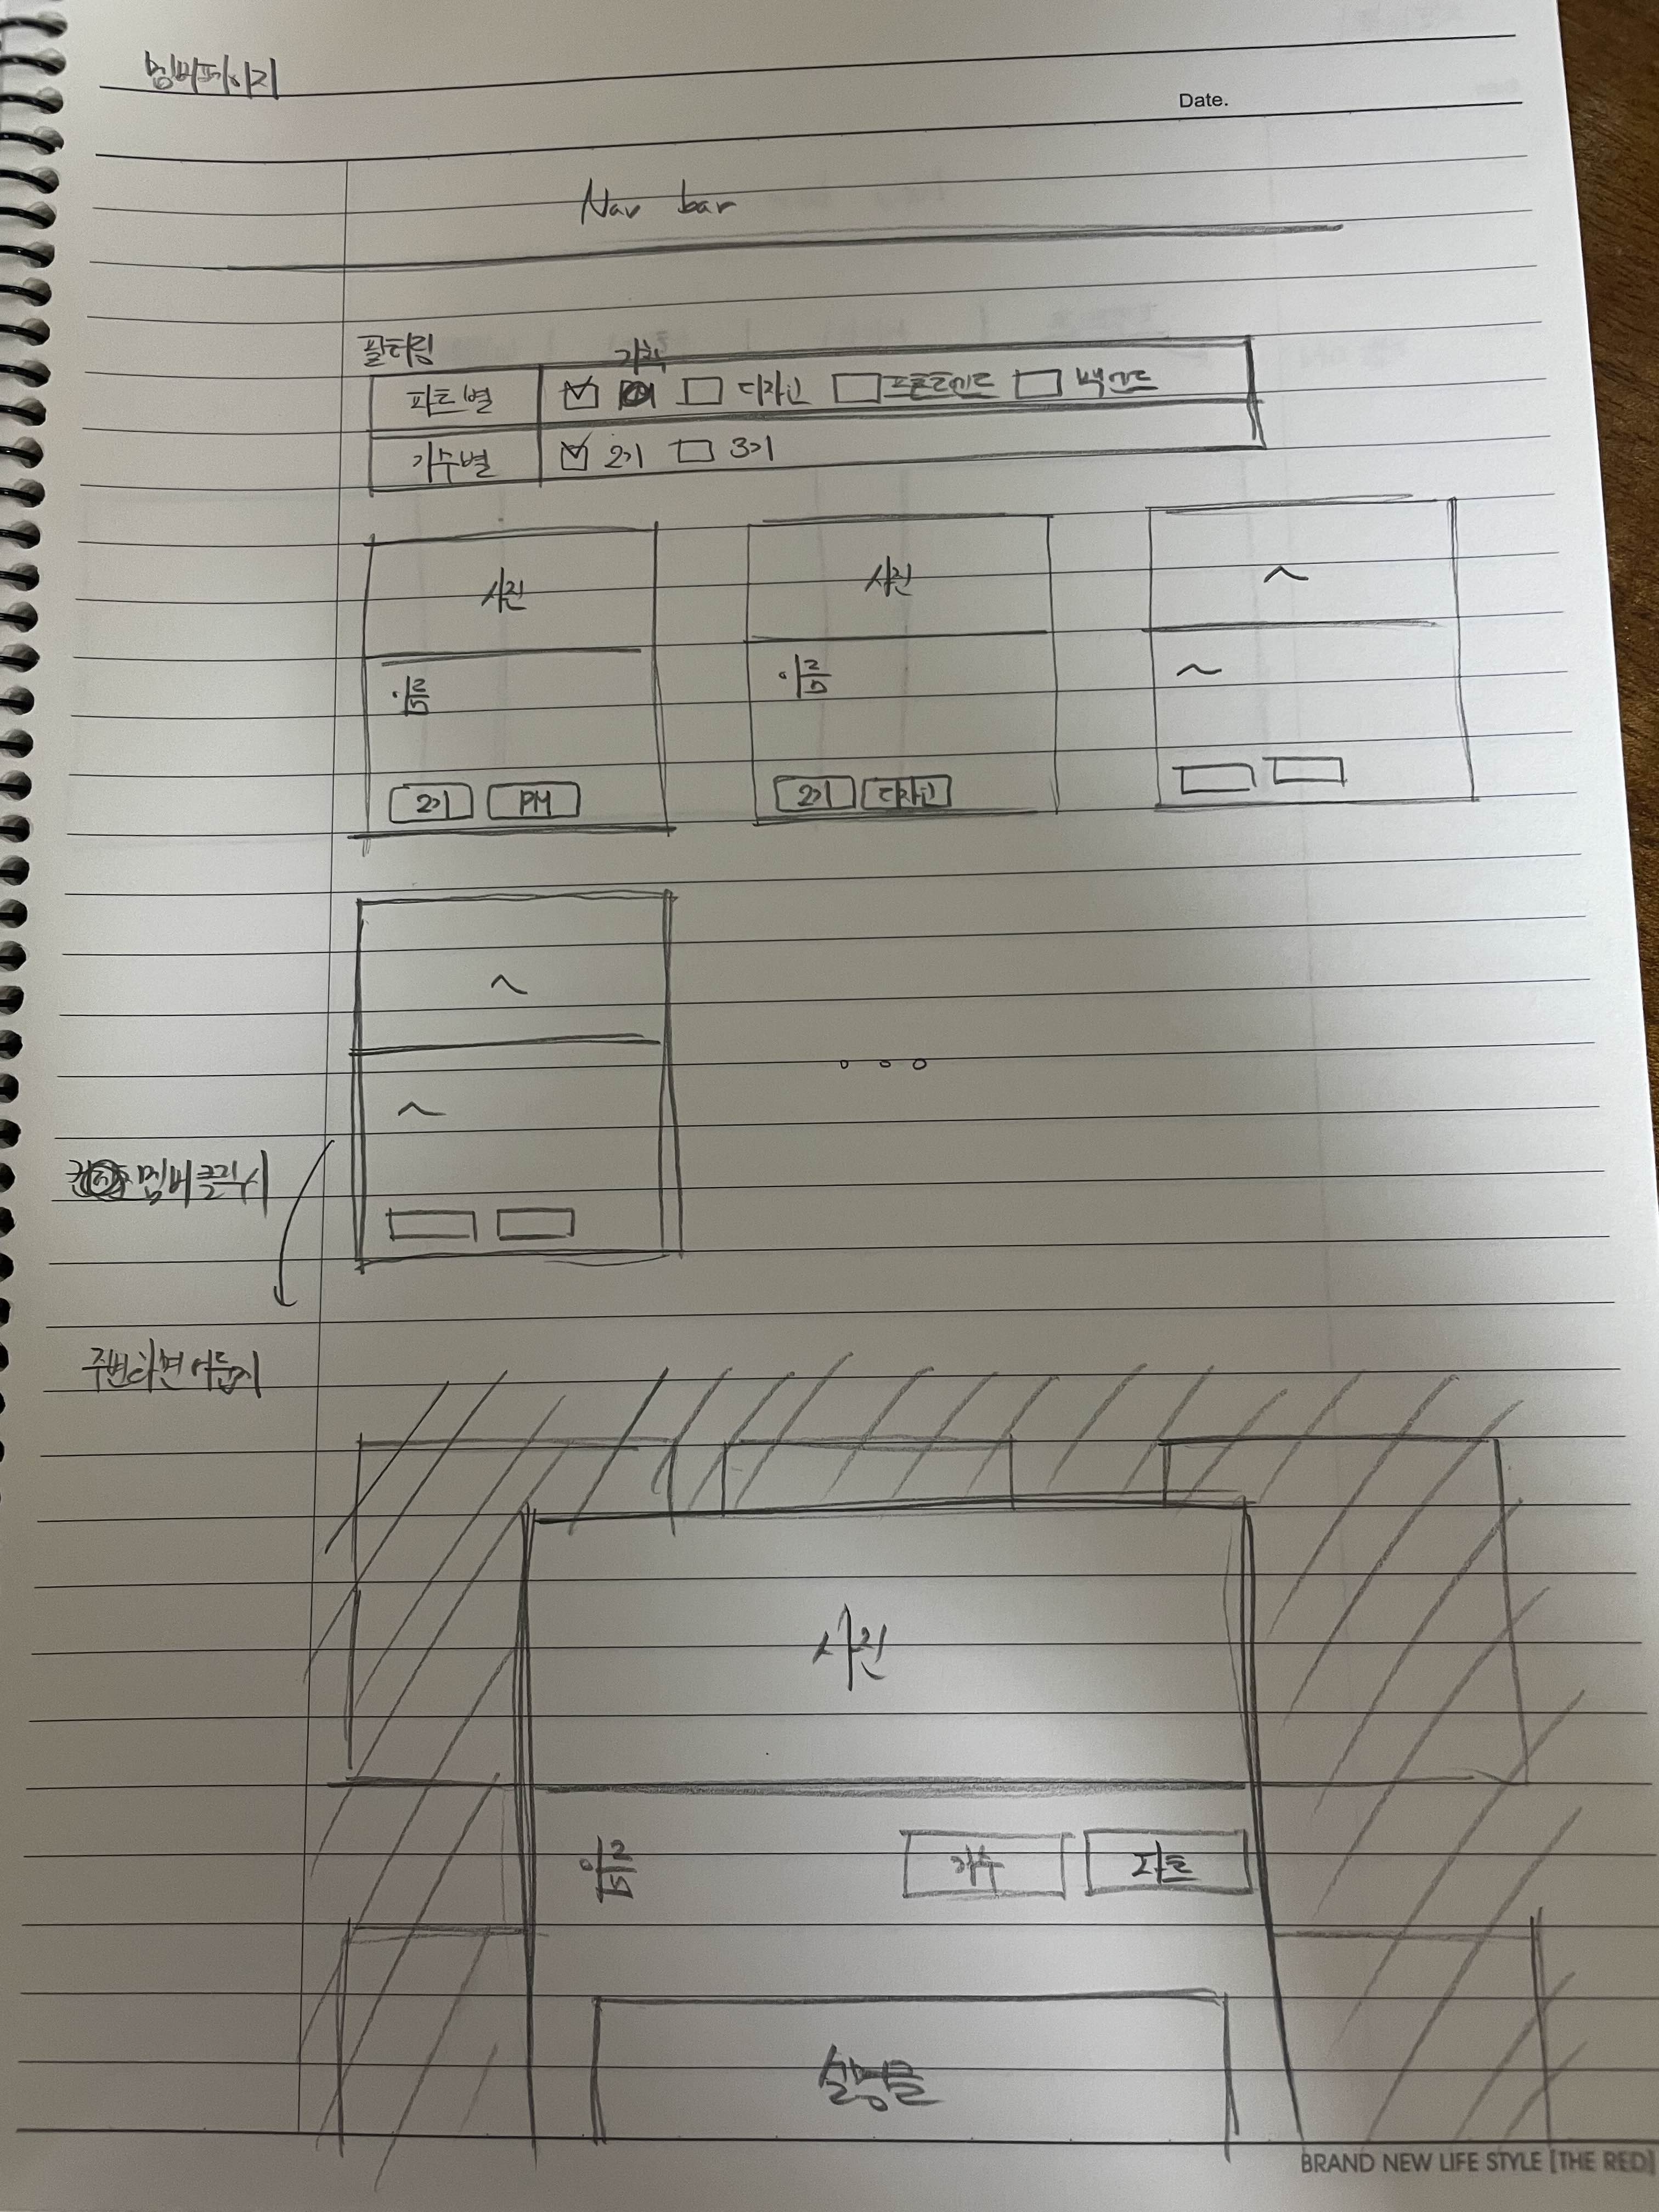 멤버페이지
Date.
Nav bar
필터링
기획
파트별 디자인 프론트엔드 백엔드
기수별 2기 3기
사진 사진
이름 이름
2기 PM 2기 디자인
멤버 클릭시
주변화면 어둡게
사진
이름 기수 파트
설명글
BRAND NEW LIFE STYLE [THE RED]